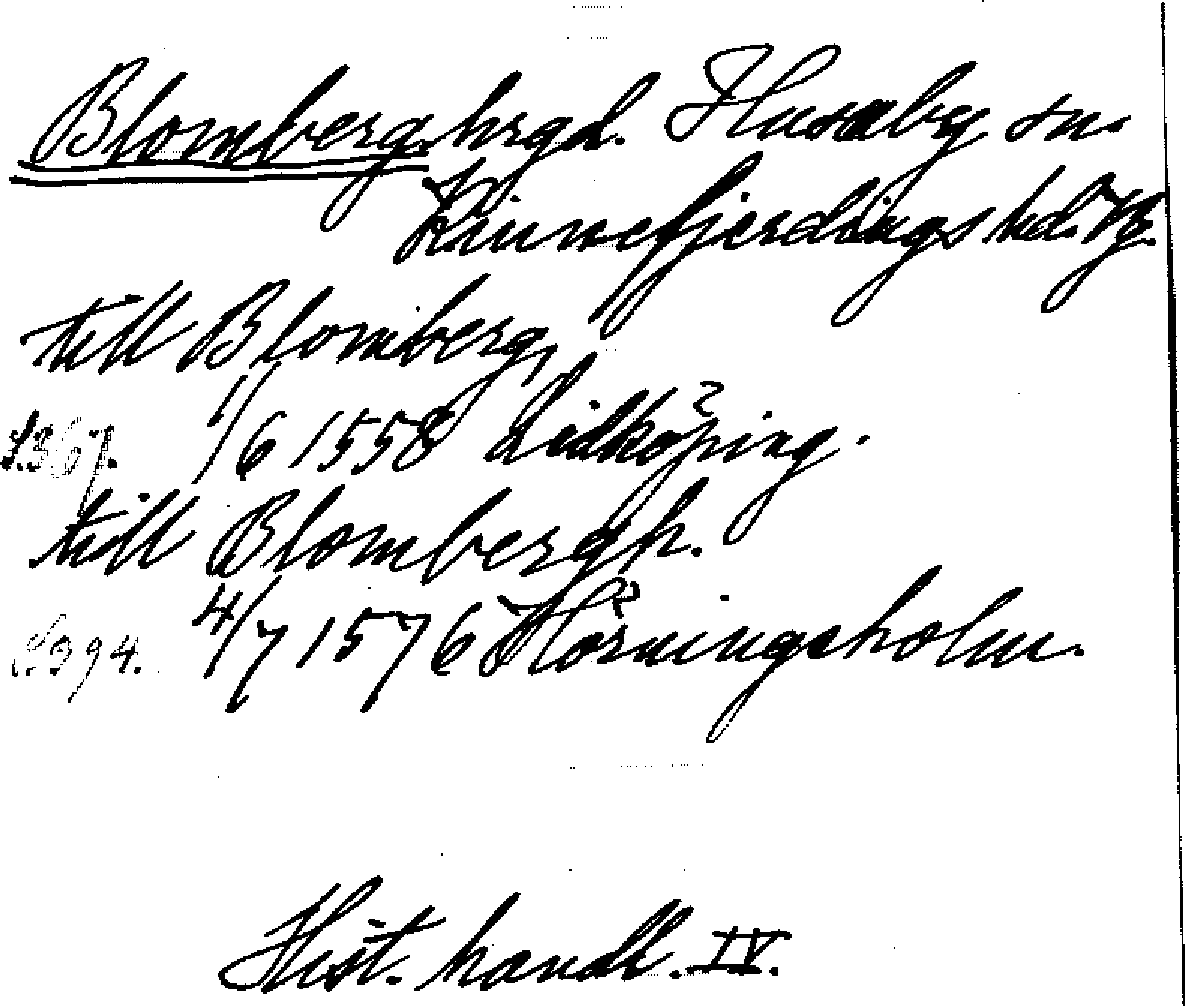 Blomberg hrgd. Husaby sn.
Kinnefjerdings hd. Vg.
till Blomberg,
s.367. 1/6 1558 Lidköping.
till Blombergh.
s.394. 4/7 1576 Hörningsholm.
Hist. handl. IV.